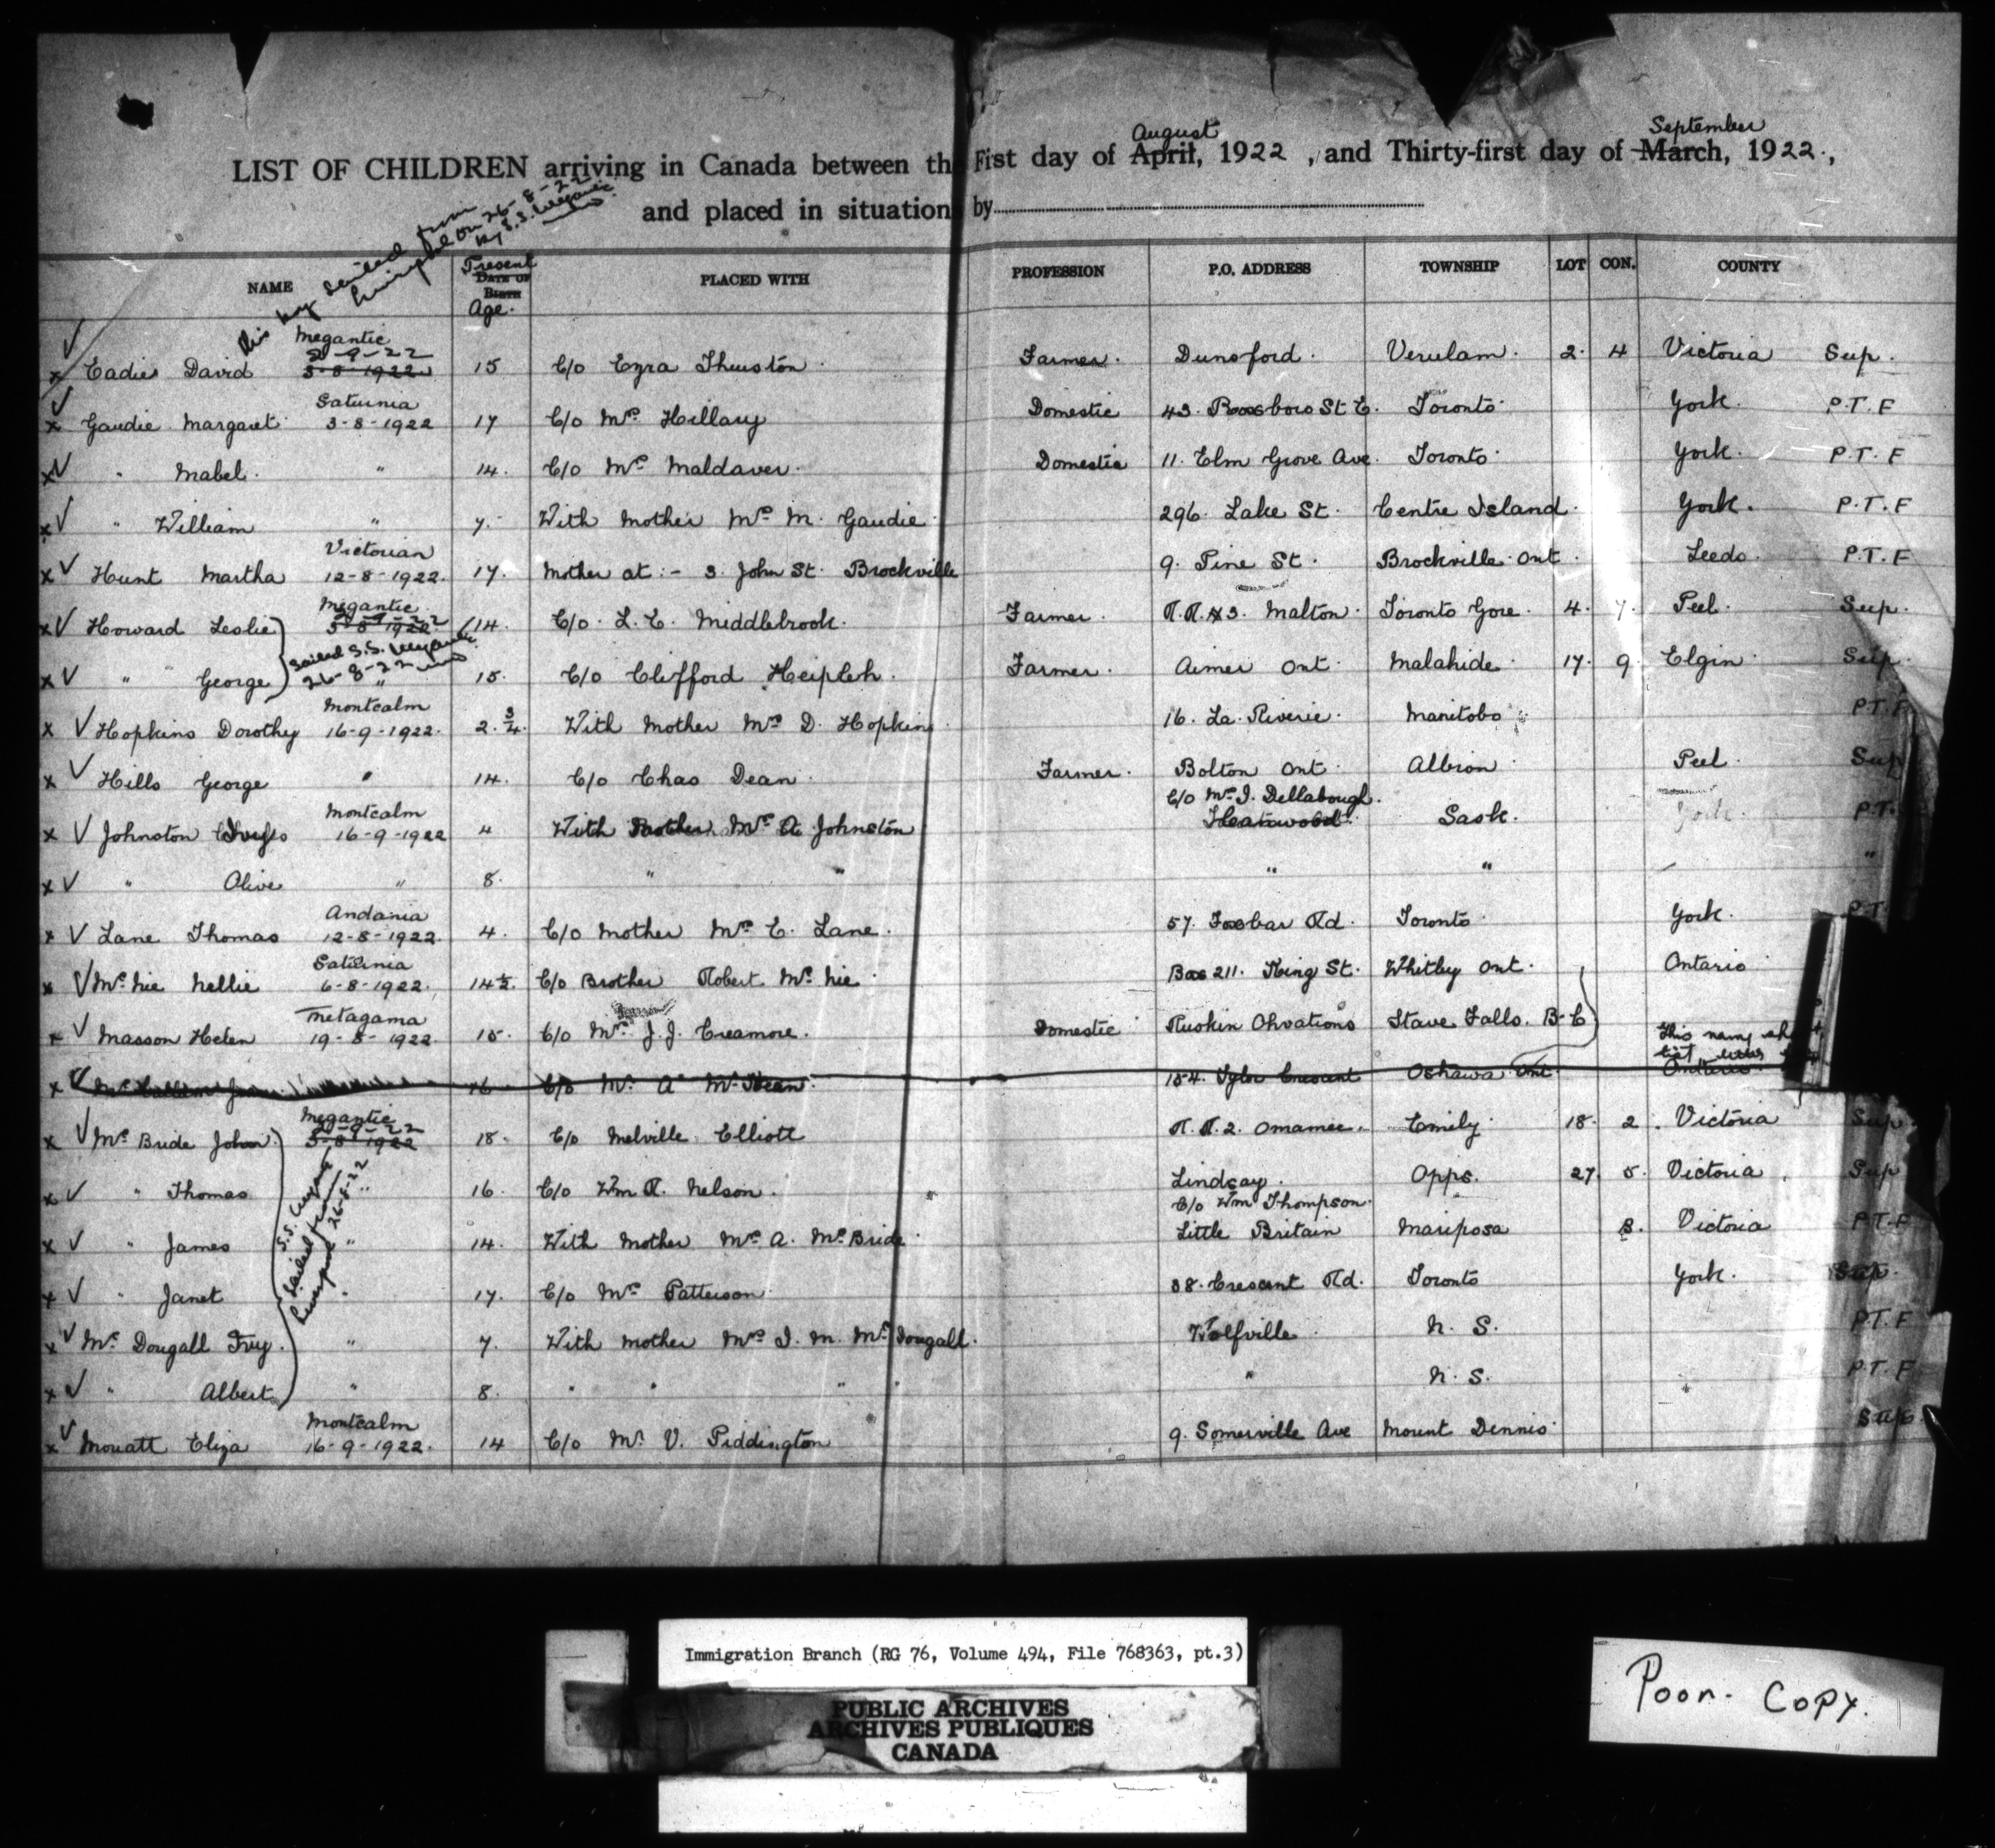 August September
LIST OF CHILDREN arriving in Canada between the First day of April, 1922, and Thirty-first day of March, 1922.,
and placed in situations by
This boy sailed from
Liverpool on 26-8-22
by S.S. Megantic
NAME Present DATE OF BIRTH Age. PLACED WITH PROFESSION P.O. ADDRESS TOWNSHIP LOT CON. COUNTY
Megantic
2-9-22
x Eadie David 3-8-1922 15 C/o Ezra Thurston Farmer. Dunsford. Verulam. 2. 4 Victoria Sup.
Saturnia
x Gaudie Margaret 3-8-1922 17 C/o Mrs Hillary Domestic 43. Roxboro St E. Toronto York. P.T.F
x " Mabel. " 14. C/o Mrs Maldaver. Domestic 11. Elm Grove Ave. Toronto York. P.T.F
x " William " 7. With Mother Mrs M. Gaudie 296. Lake St. Centre Island. York. P.T.F
Victorian
x Hunt Martha 12-8-1922. 17. Mother at:- 3. John St. Brockville 9. Pine St. Brockville Ont. Leeds. P.T.F
Megantic
x Howard Leslie 3-8-1922 14. C/o. L. E. Middlebrook. Farmer. R.R.#3. Malton. Toronto Gore. 4. 7. Peel. Sup.
Sailed S.S. Megantic
26-8-22
x " George " 15. C/o Clifford Farmer. Aimer Ont. Malahide 17. 9. Elgin Sup.
Montcalm
x Hopkins Dorothy 16-9-1922. 2.3/4. With Mother Mrs D. Hopkins 16. La. Riverie. Manitoba P.T.F
x Hills George " 14. C/o Chas Dean. Farmer. Bolton Ont. Albion Peel. Sup
Montcalm C/o Mrs I. Dellabough.
x Johnston 16-9-1922 4 With Mother Mrs A Johnston Sask. York. P.T.
x " Olive " 8. " " " " "
Andania
x Lane Thomas 12-8-1922. 4. C/o Mother Mrs C. Lane. 57. Foxbar Rd. Toronto York. P.T.
Saturnia
x Mc Nie Nellie 6-8-1922. 14½. C/o Brother Robert Mc Nie. Box 211. King St. Whitby Ont. Ontario
Metagama
x Masson Helen 19-8-1922. 15. C/o Mrs J.J. Creamore. Domestic Ruskin Stave Falls. B-C
This name
x 16 C/o Mr A Mc Kean. 154. Crescent Oshawa Ont. Ontario.
Megantic
2-9-22
x Mc Bride John 3-8-1922 18. C/o Melville Elliott R.R.2. Omamee. Emily 18. 2. Victoria Sup
x " Thomas " 16. C/o Wm R. Nelson. Lindsay. Opps. 27. 5. Victoria. Sup
C/o Wm Thompson.
x " James " 14. With Mother Mrs A. Mc Bride Little Britain Mariposa 8. Victoria P.T.F
x " Janet 17. C/o Mrs Patterson. 38. Crescent Rd. Toronto York. Sup.
S.S. Megantic
Sailed from
Liverpool 26-8-22
x Mc Dougall " 7. With Mother Mrs I. M. Mc Dougall. Wolfville N. S. P.T.F
x " Albert " 8. " " " " " N. S. P.T.F
Montcalm
x Mouatt Eliza 16-9-1922. 14 C/o Mr V. Piddington 9. Somerville Ave Mount Dennis Sup.
Immigration Branch (RG 76, Volume 494, File 768363, pt.3)
PUBLIC ARCHIVES
ARCHIVES PUBLIQUES
CANADA
Poor. Copy.